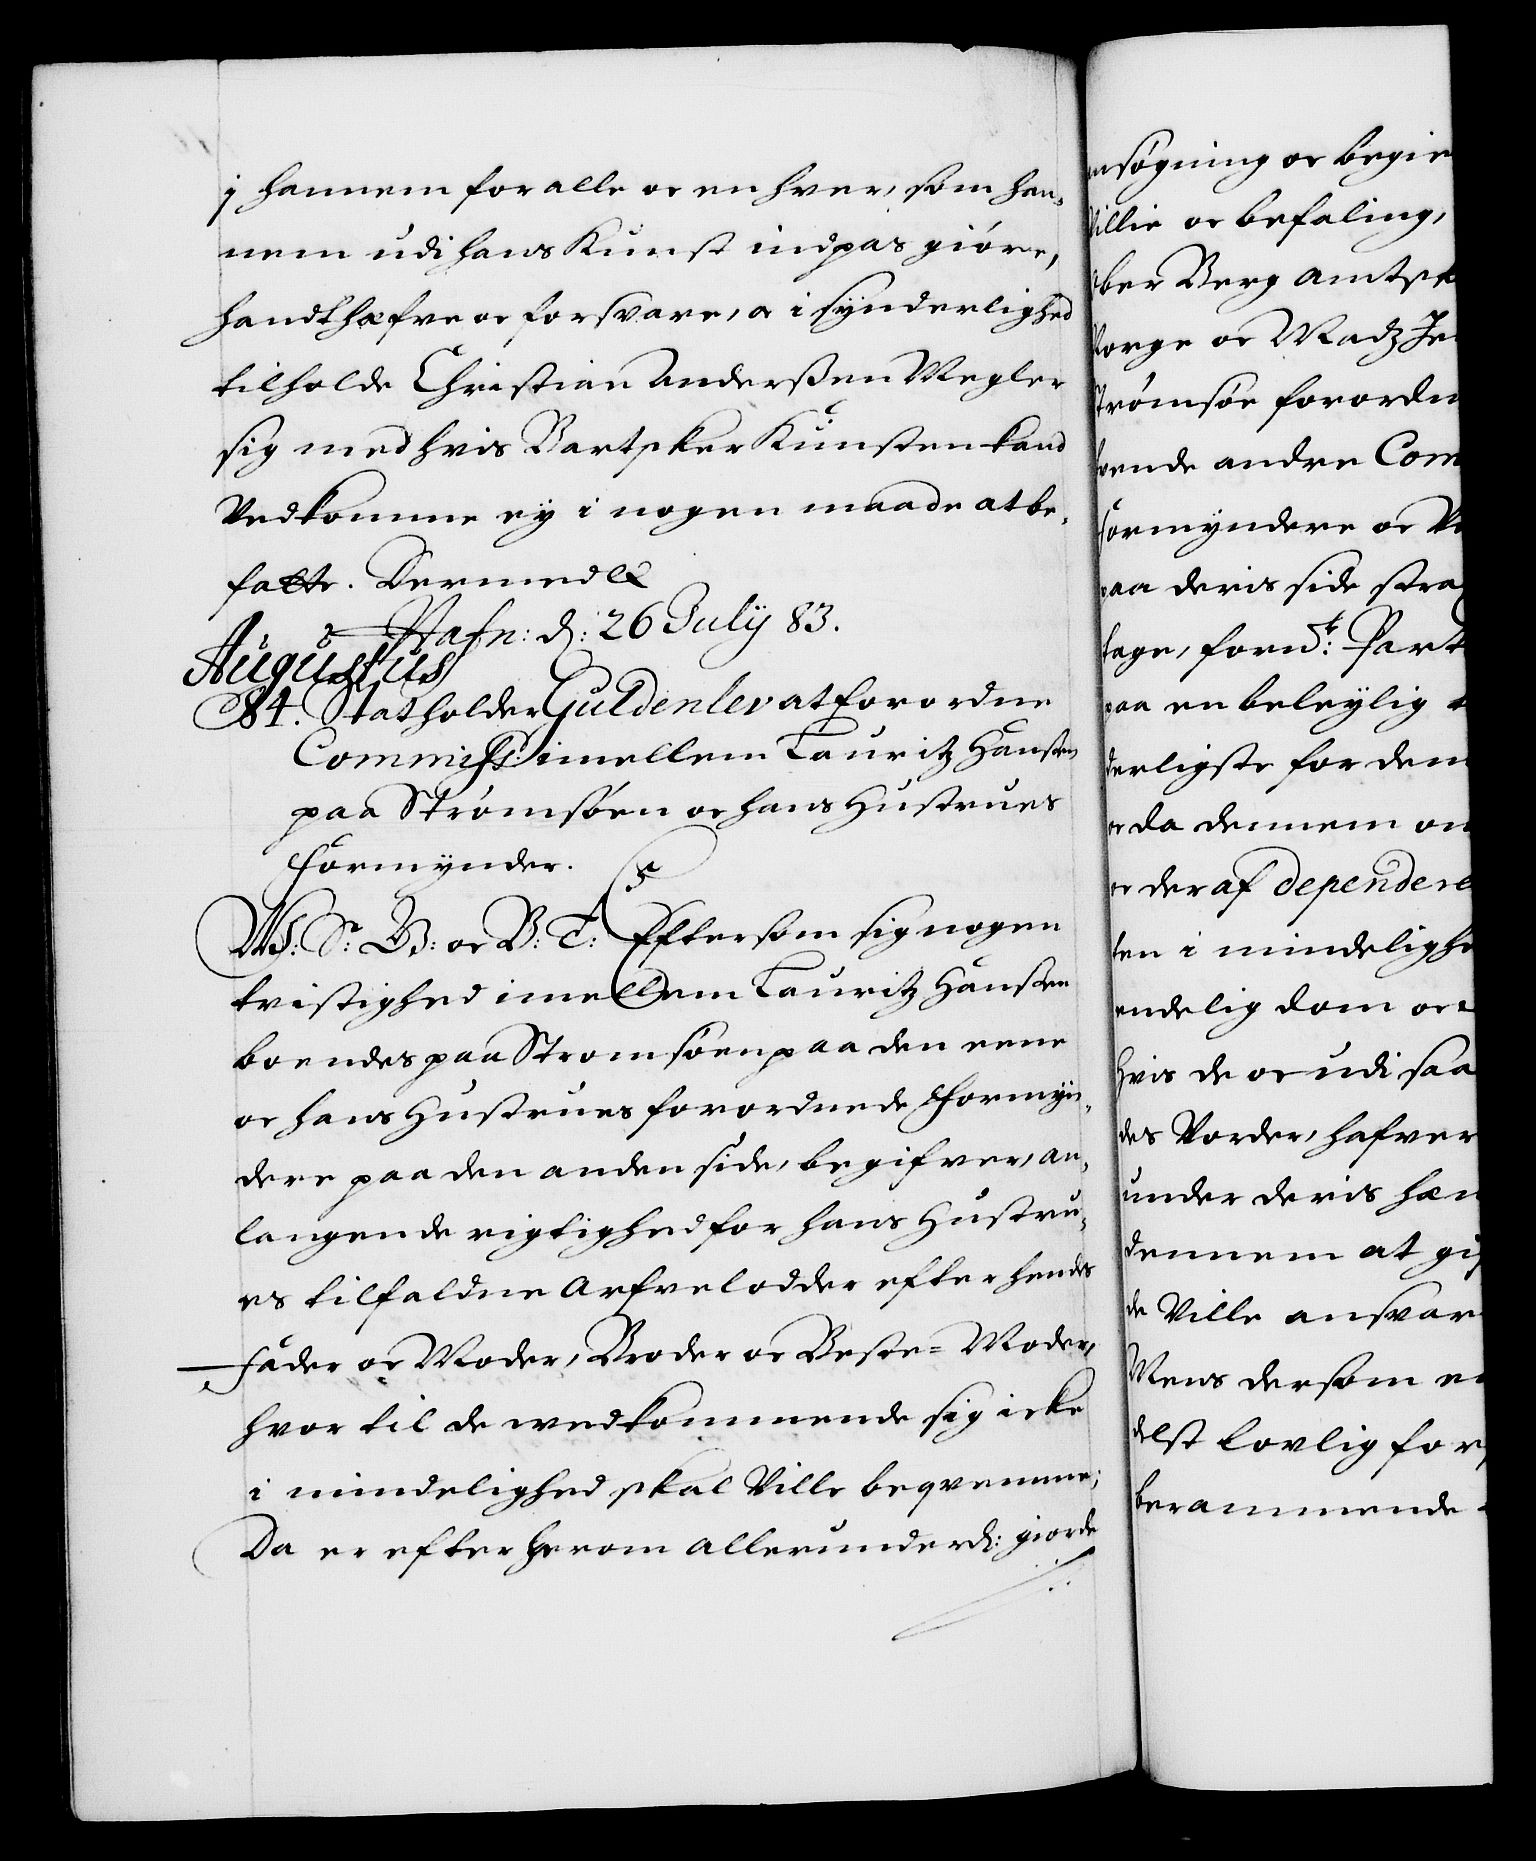 j hannem for alle oc en hver, som han-
nem udi hans Kunst indpas giöre,
handthæfve oc forsvare, oc i synderlighed
tilholde Christian Anderßen Megler
sig med hvis Bartskier Kunsten kand
Vedkomme ey i nogen maade at be-
fatte. Dermed &c
Hafn: d: 26 July 83.
Augustus
84. Statholder Guldenlev at forordne
Commiss: imellem Lauritz Hansen
paa Strömsöen oc hans Hustrues
Formynder.
V: S: G: oc B: T: Eftersom sig nogen
tvistighed imellem Lauritz Hansen
boendes paa Stromsöen paa den eene
oc hans Hustrues forordnede Formÿn-
dere paa den anden side, begifver, an-
langende rigtighed for hans Hustru-
es tilfaldne Arfvelodder efter hendes
Fader oc Moder, Broder oc Beste= Moder,
hvor til de vedkommende sig icke
i mindelighed skal Ville beqvemme;
Da er efter herom allerunderd: giorde
nsögning oc begie
Villie oc befaling,
ober Berg amtsk
Norge oc Madz Je
Strömsöe forordn
vende andre Com
Formyndere oc
paa deris side stra
tage, fornd: Part
paa en beleylig
derligste for dem
oc da dennem om
oc der af dependere
ten i mindelighe
endelig dom oc
hvis de oc udi saa
des Vorder, hafver
under deris hæn
dennem at gif
de Ville ansvar
Mens dersom
delst lovlig for
berammende